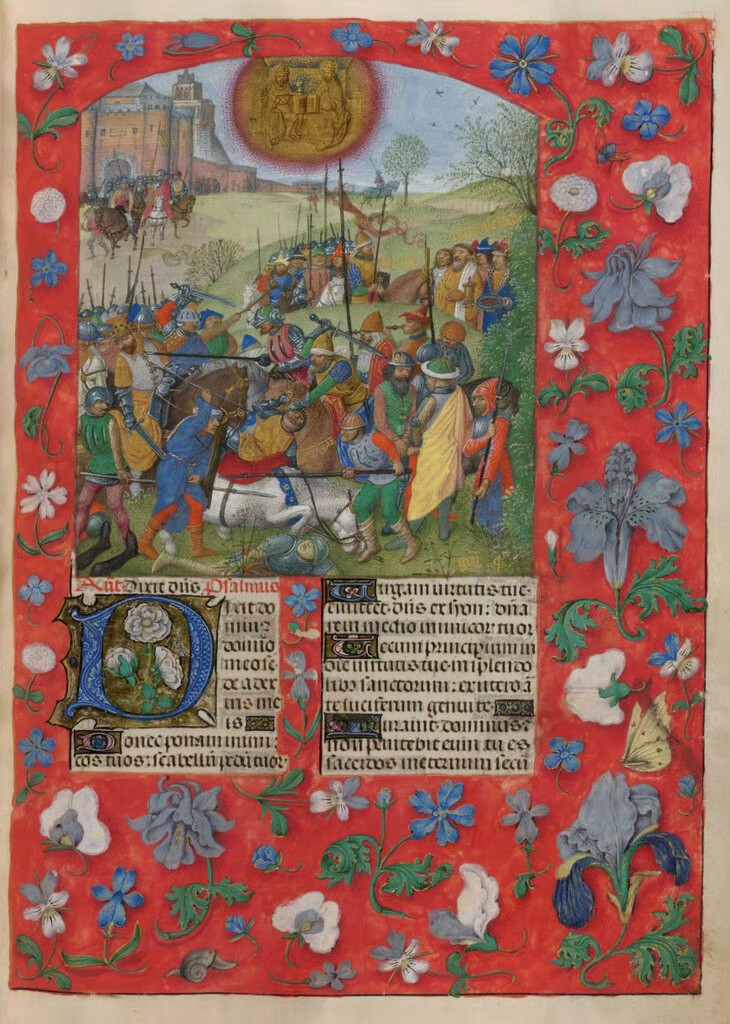 Añt Dixit dñs Psalmus
Dixit do
minus
domino
meo se
de a dex
tris me
is
Donec ponam inimi
cos tuos: scabellũ pedũ tuor
Virgam virtutis tue
emittet dñs ex syon: dña
re in medio inimicor tuor
Tecum principium in
die virtutis tue in splendo
ribꝰ sanctorum: ex utero ã
te luciferum genui te
Iurauit dominus: ⁊
non penitebit eum tu es
sacerdos in eternum secũ